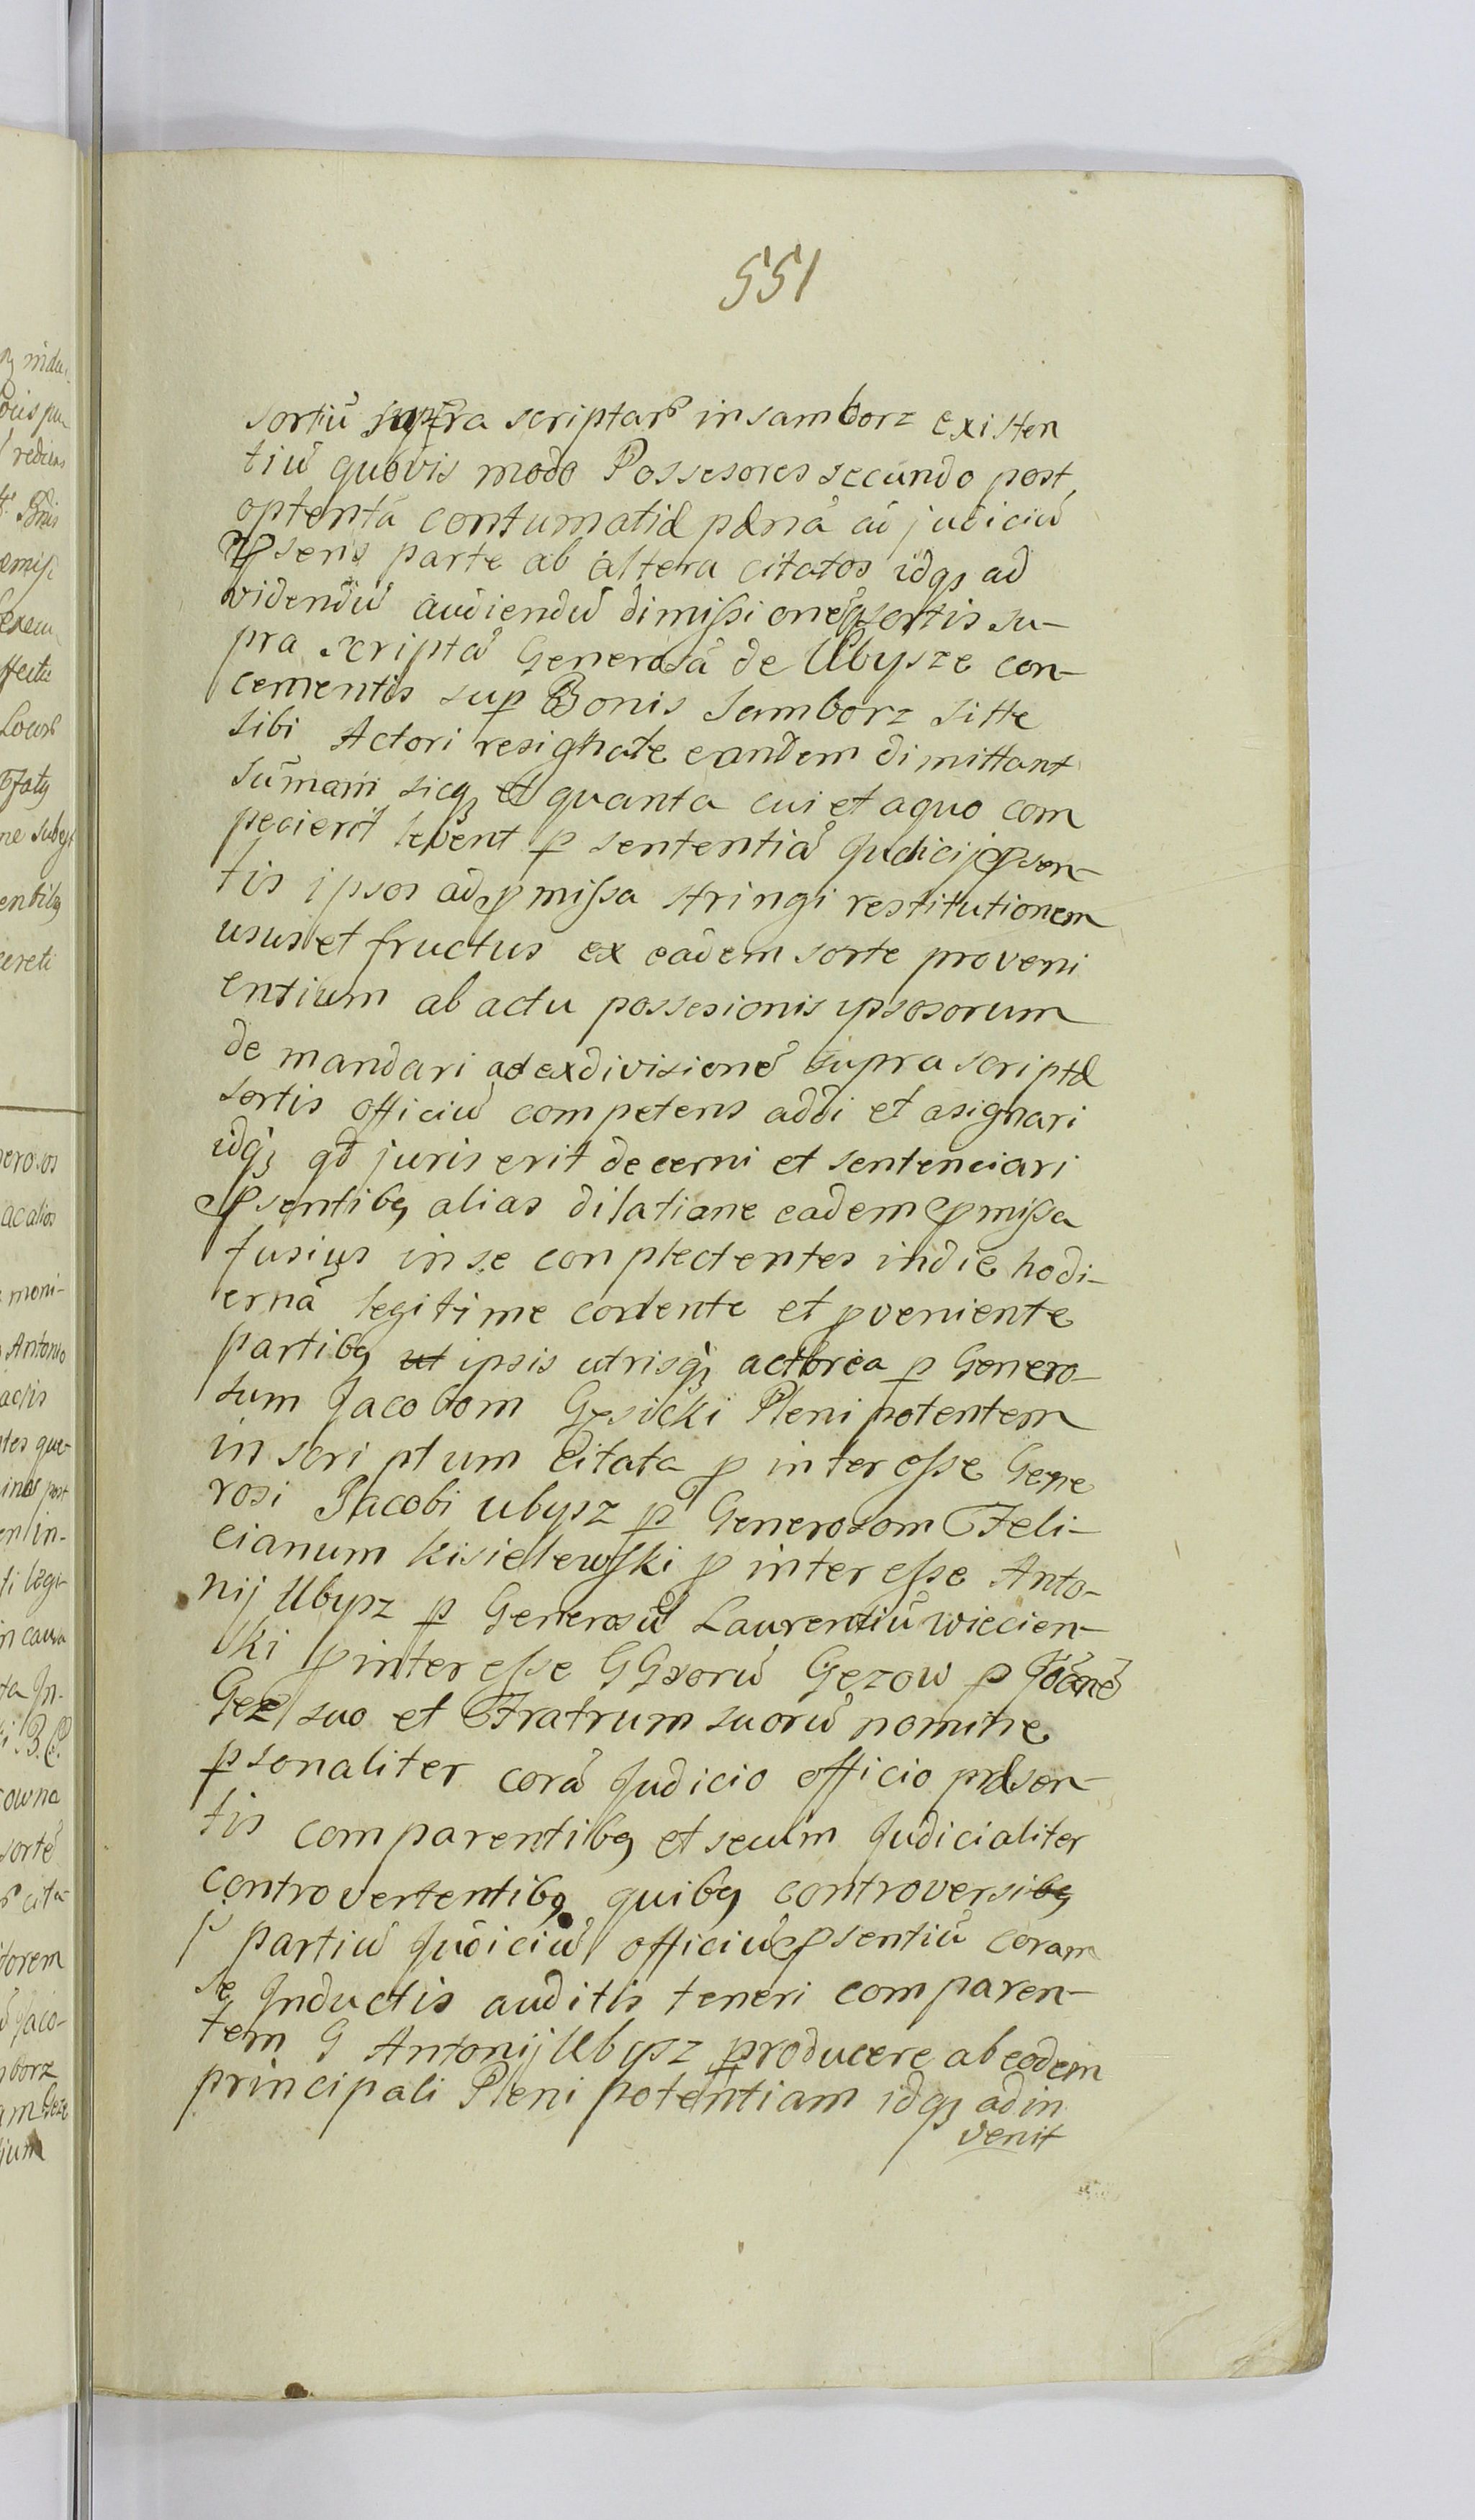 551
sortiū supra scriptarū in samborz existen
tiū quovis modo Possesores secundo post
optentā contumatiæ pænā ad judiciū
præsens parte ab altera citatos idqȝ ad
videndū audiendū dimissionē sortis su-
pra scriptā Generosā de Ubysze con-
cernentis sup Bonis Samborz sitte
sibi Actori resignate eandem dimittant
Sūmam sicqȝ et quanta cui et aquo com
pecierit levent p sententiā Judicij præsen-
tis ipsos ad præmissa stringi restitutionem
usus et fructus ex eadem sorte proveni
entium ab actu possesionis ipsosorum
de mandari ad exdivisionē supra scriptæ
sortis officiū competens addi et asignari
idqȝ qd juris erit decerni et sentenciari
præsentibȝ alias dilatione eadem præmissa
fusius in se conplectentes in die hodi-
ernā legitime cordente et pveniente
partibȝ ut ipsis utrisqȝ actorea p Genero-
sum Jacobom Gęsicki Plenipotentem
in scriptum citata p interesse Gene
rosi Jacobi Ubysz p Generosom Feli-
cianum Kisielewski p interesse Anto-
nij Ubysz p Generosū Laurentiū Wiecien-
ski p interesse GGsorū Gęzow p Joānē
Gęz suo et Fratrum suorū nomine
psonaliter corā Judicio officio præsen-
tis comparentibȝ et secum Judicialiter
controvertentibȝ quibȝ controversibȝ
partiū Judiciū officiū præsentiū coram
se Inductis auditis teneri comparen-
tem G Antonij Ubysz producere ab eodem
principali Plenipotentiam idqȝ ad in
venit